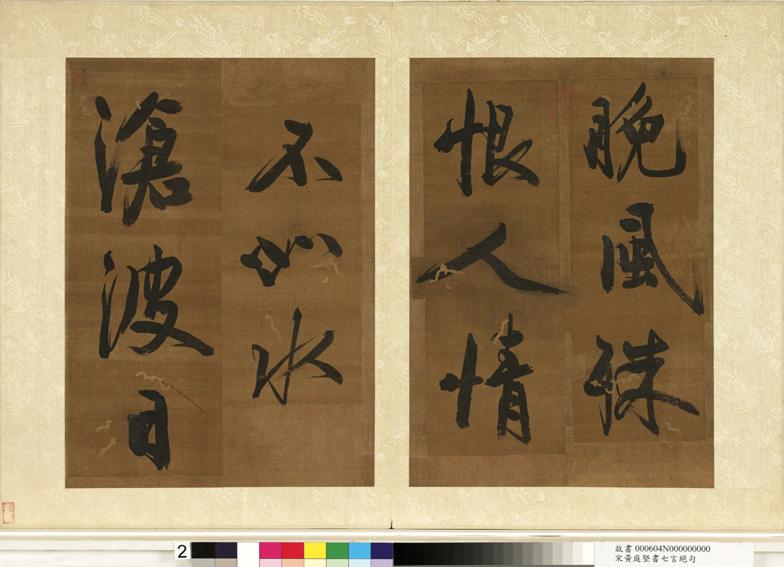 晚風殊
恨人情
不以水
滄波日
2
故書 000604N000000000
宋黃庭堅書七言絕句